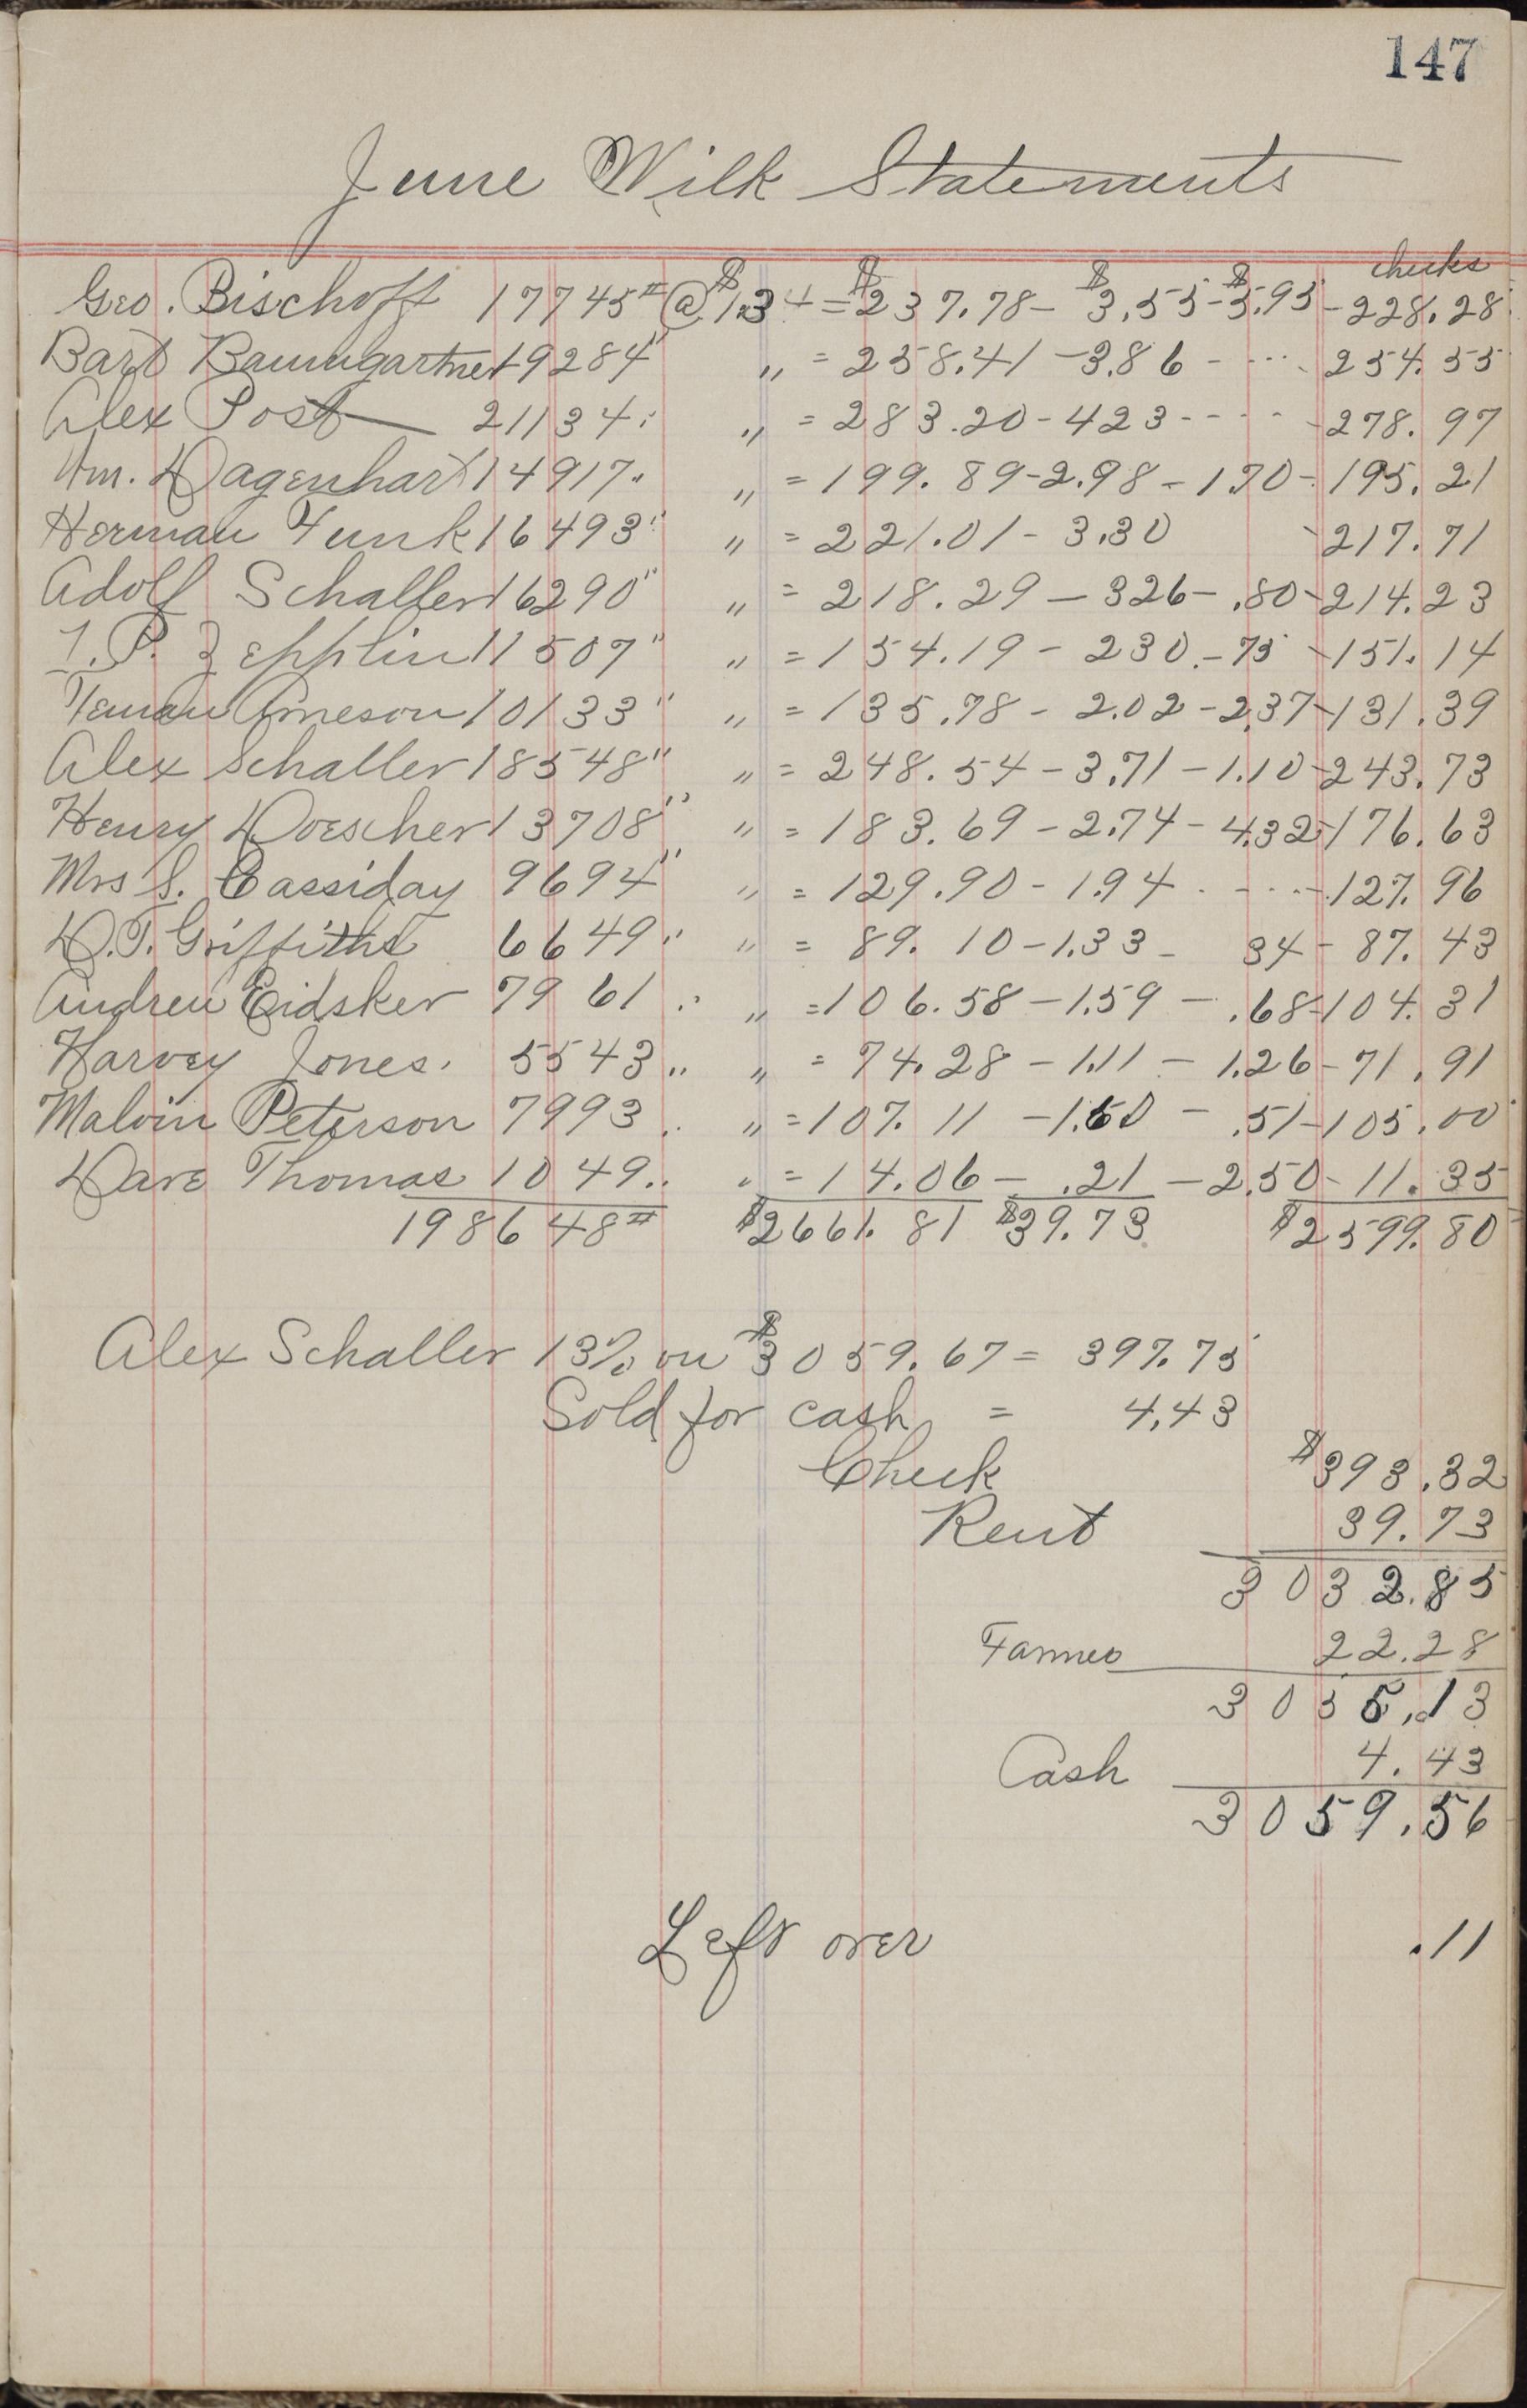 147
June Milk Statements
checks
Geo. Bischoff 17745# @ $1.34 = $237.78 - $3.55 - $5.95 - 228.28
Bart Baumgartner 19284" " = 258.41 - 3.86 - ... 254.55
Alex Post 21134" " = 283.20 - 423 - - - - 278.97
Wm. Dagenhart 14917" " = 199.89 - 2.98 - 1.70 - 195.21
Herman Funk 16493" " = 221.01 - 3.30 - 217.71
Adolf Schaller 16290" " = 218.29 - 326 - .80 - 214.23
F.P. Zepplin 11507" " = 154.19 - 230. - 75 - 151.14
Arneson 10133" " = 135.78 - 2.02 - 2.37 - 131.39
Alex Schaller 18548" " = 248.54 - 3.71 - 1.10 - 243.73
Henry Doescher 13708" " = 183.69 - 2.74 - 4.32 - 176.63
Mrs S. Cassiday 9694" " = 129.90 - 1.94 - - - - 127.96
D.T. Griffiths 6649" " = 89.10 - 1.33 - 34 - 87.43
Andrew Eidsker 7961" " = 106.58 - 1.59 - .68 - 104.31
Harvey Jones. 5543" " = 74.28 - 1.11 - 1.26 - 71.91
Malvin Peterson 7993" " = 107.11 - 1.60 - .51 - 105.00
Dave Thomas 1049" " = 14.06 - .21 - 2.50 - 11.35
198648# $2661.81 $39.73 $2599.80
Alex Schaller 13% on $3059.67 = 397.75
Sold for cash = 4.43
Check $393.32
Rent 39.73
3032.85
22.28
3055.13
Cash 4.43
3059.56
Left over .11